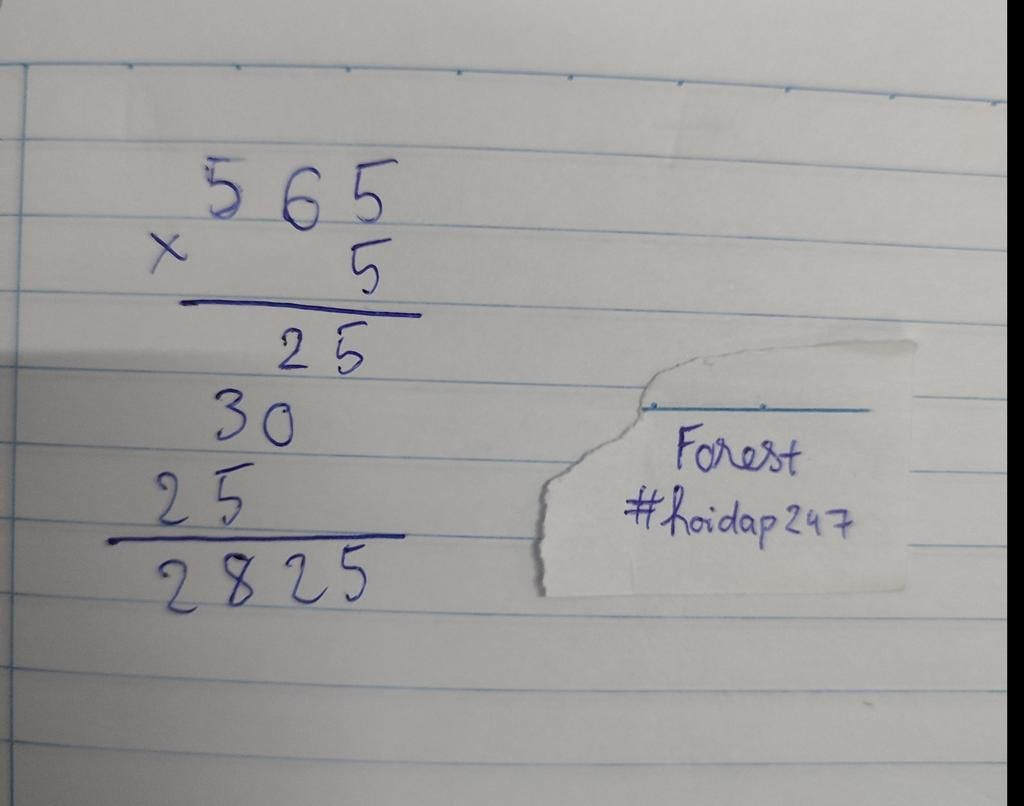 565
× 5
25
30
25
2825
Forest
#hoidap247